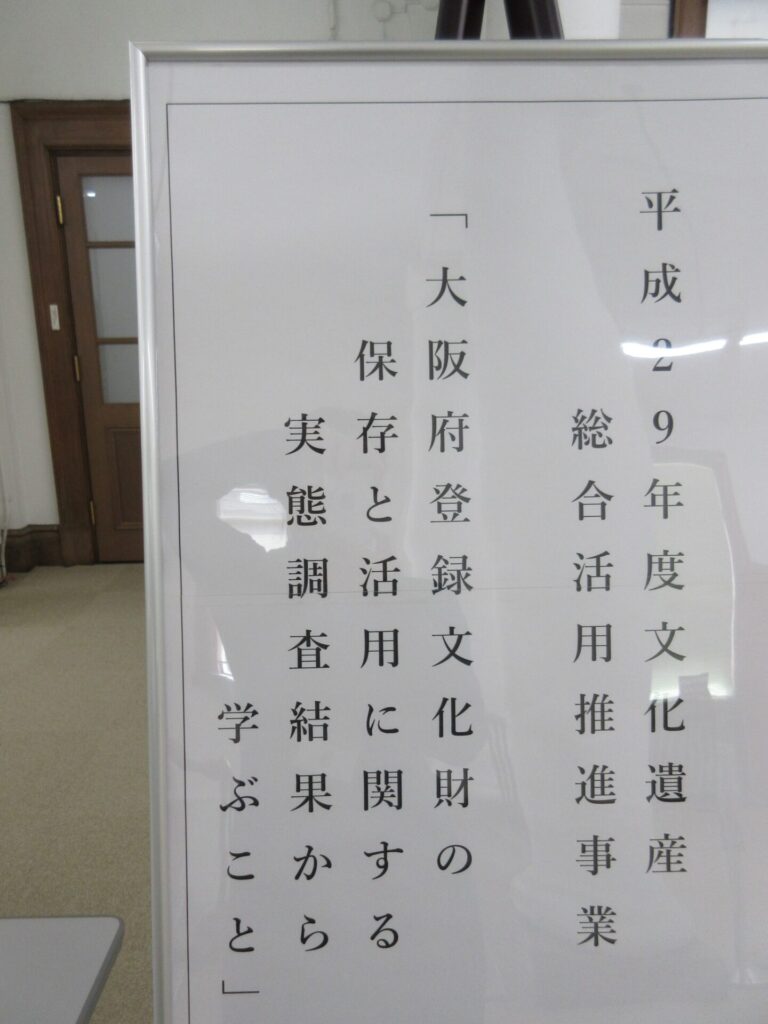 平成29年度文化遺産
総合活用推進事業
「大阪府登録文化財の
保存と活用に関する
実態調査結果から
学ぶこと」